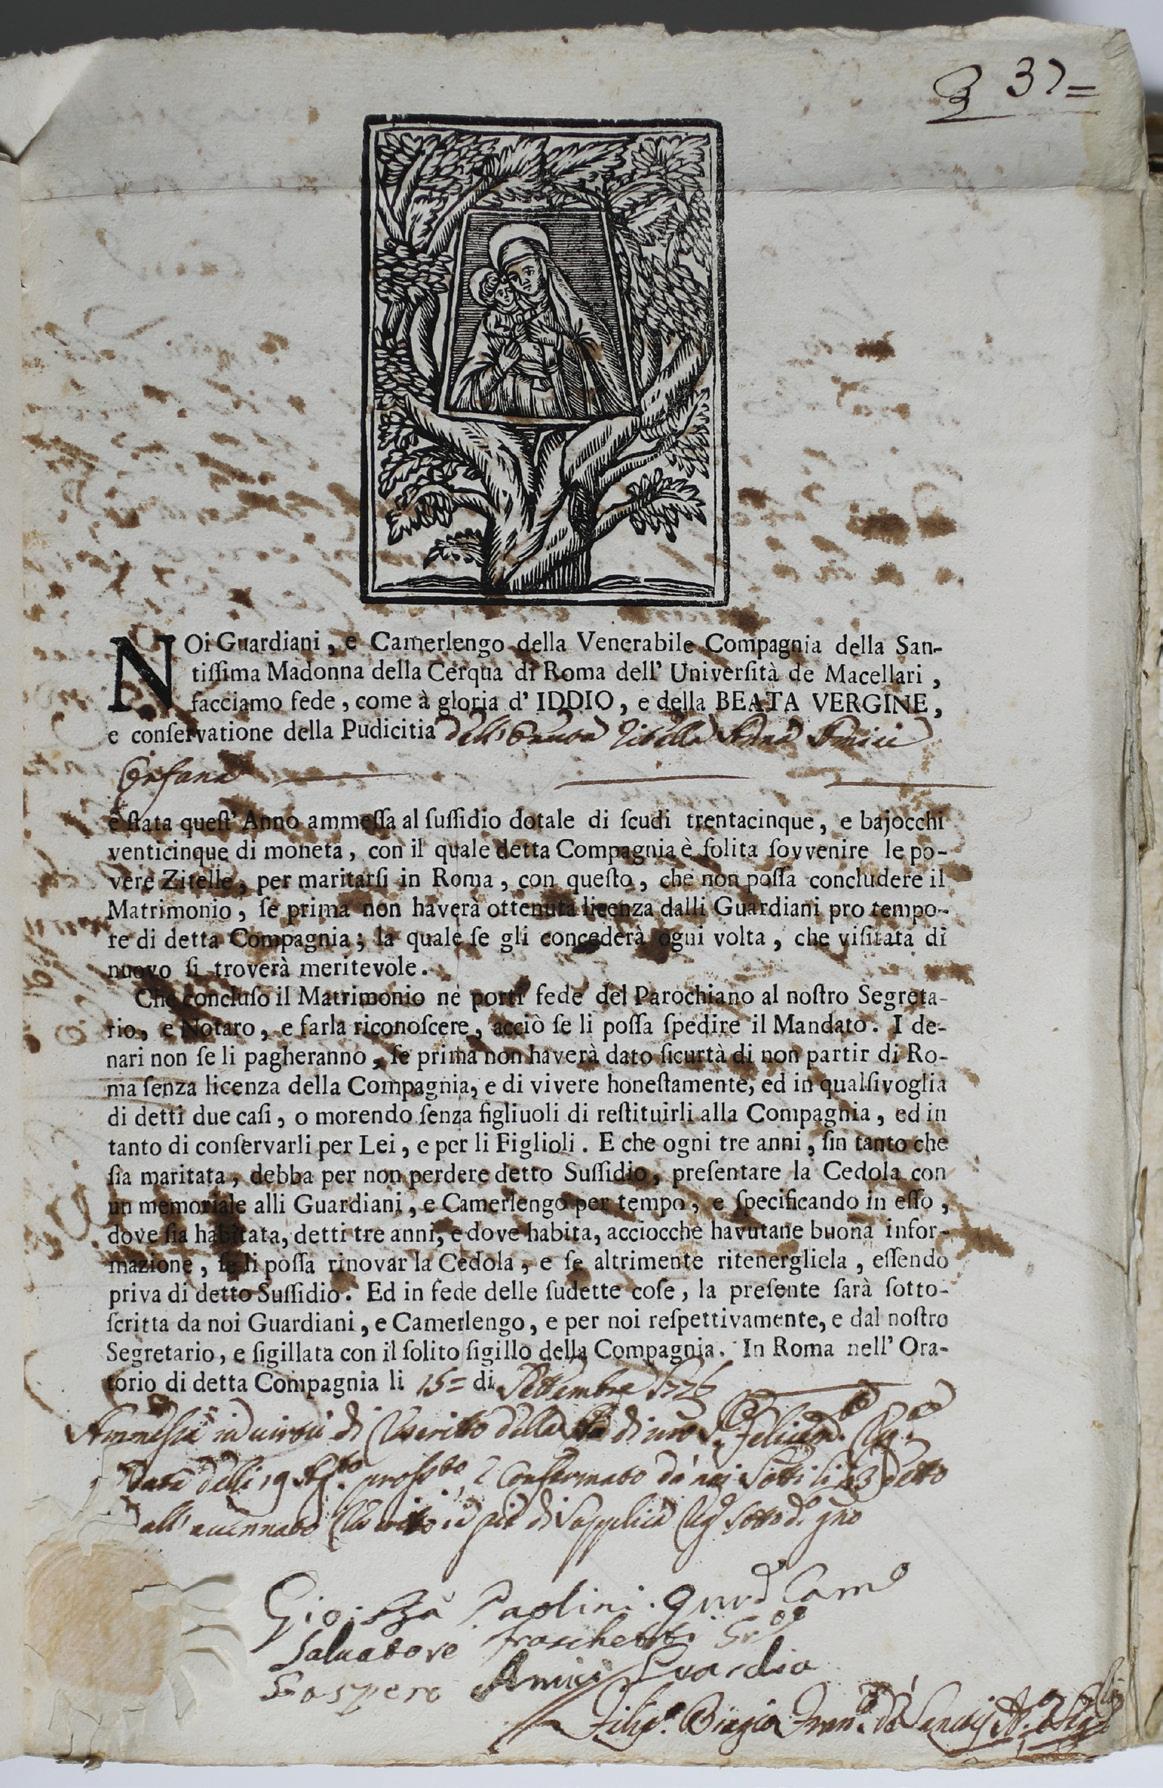 37=
NOi Guardiani, e Camerlengo della Venerabile Compagnia della San-
tissima Madonna della Cerqua di Roma dell' Università de Macellari,
facciamo fede, come à gloria d' IDDIO, e della BEATA VERGINE,
e conservatione della Pudicitia Zitella Anna Amici
Orfana
è stata quest' Anno ammessa al sussidio dotale di scudi trentacinque, e bajocchi
venticinque di moneta, con il quale detta Compagnia è solita sovvenire le po-
vere Zitelle, per maritarsi in Roma, con questo, che non possa concludere il
Matrimonio, se prima non haverà ottenuta licenza dalli Guardiani pro tempo-
re di detta Compagnia; la quale se gli concederà ogni volta, che visitata di
nuovo si troverà meritevole.
Che concluso il Matrimonio ne porti fede del Parochiano al nostro Segreta-
rio, e Notaro, e farla riconoscere, acciò se li possa spedire il Mandato. I de-
nari non se li pagheranno, se prima non haverà dato sicurtà di non partir di Ro-
ma senza licenza della Compagnia, e di vivere honestamente, ed in qualsivoglia
di detti due casi, o morendo senza figliuoli di restituirli alla Compagnia, ed in
tanto di conservarli per Lei, e per li Figlioli. E che ogni tre anni, sin tanto che
sia maritata, debba per non perdere detto Sussidio, presentare la Cedola con
un memoriale alli Guardiani, e Camerlengo per tempo, e specificando in esso,
dove sia habitata, detti tre anni, e dove habita, acciocchè havutane buona infor-
mazione, se li possa rinovar la Cedola, e se altrimente ritenergliela, essendo
priva di detto Sussidio. Ed in fede delle sudette cose, la presente sarà sotto-
scritta da noi Guardiani, e Camerlengo, e per noi respettivamente, e dal nostro
Segretario, e sigillata con il solito sigillo della Compagnia. In Roma nell' Ora-
torio di detta Compagnia li 15= di Settembre
Ammessa in virtù di Rescritto della di
Data delli 19 confermato da noi li 23 detto
all' accennato Rescritto à piè di Supplica
Paolini Guard
Salvatore
Gaspero Amici Guardia
Biagio